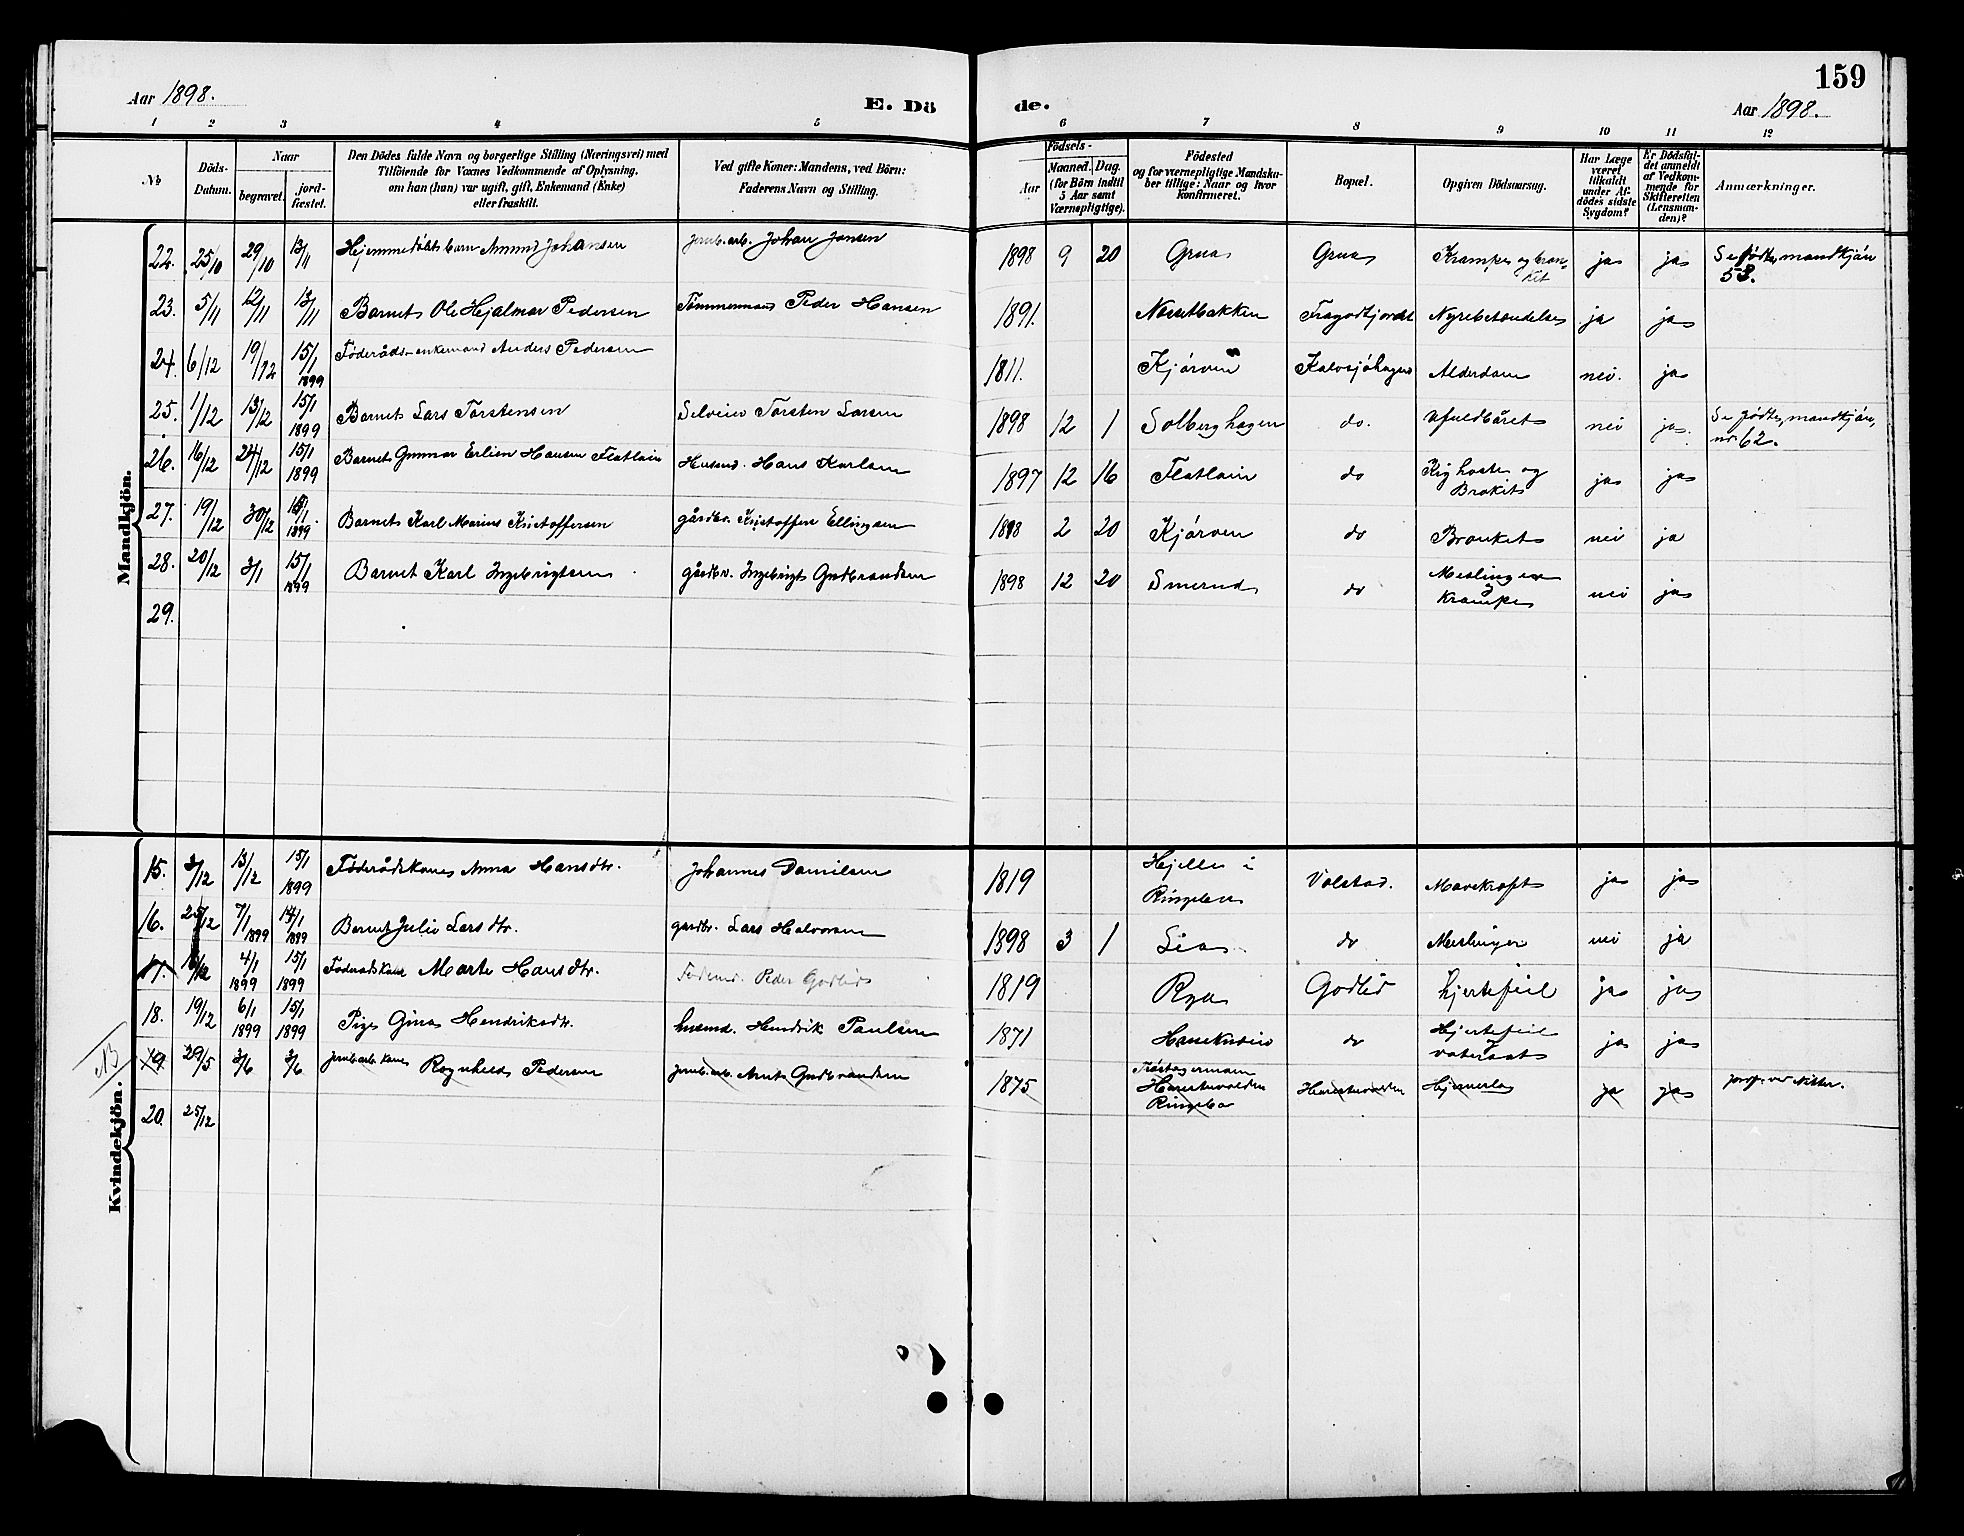 159
Aar 1898.
E. Dö
de.
Aar 1898.
1 2 3 4 5 6 7 8 9 10 11 12
№
Döds-Datum.
Naar
begravet.
jord-fæstet.
Den Dödes fulde Navn og borgerlige Stilling (Næringsvei) med
Tilföiende for Voxnes Vedkommende af Oplysning,
om han (hun) var ugift, gift, Enkemand (Enke)
eller fraskilt.
Ved gifte Koner: Mandens, ved Börn:
Faderens Navn og Stilling.
Födsels-
Aar
Maaned. Dag.
(for Börn indtil
5 Aar samt
Værnepligtige).
Födested
og for værnepligtige Mandska-
ber tillige: Naar og hvor
konfirmeret.
Bopæl.
Opgiven Dödsaarsag.
Har Læge
været
tilkaldt
under Af-
dödes sidste
Sygdom?
Er Dödsfal-
det anmeldt
af Vedkom-
mende for
Skifteretten
(Lensman-
den)?
Anmærkninger.
Mandkjön.
22. 25/10 29/10 13/11 Hjemmedøbt barn Amund Johansen Jernb.arb. Johan Jonsen 1898 9 20 Grua Grua Krampe og bron-kit ja ja Se fødte, mandkjön 58.
23. 5/11 12/11 13/11 Barnet Ole Hjalmar Pedersen Tømmermand Peder Hansen 1891. Næsetbakken Nyrebetændelse ja ja
24. 6/12 19/12 15/1 1899 Føderåds-enkemand Anders Pedersen 1811. Kjørven Kalvsjöhagen Alderdom nei. ja
25. 1/12 13/12 15/1 1899 Barnet Lars Torstensen Selveier Torsten Larsen 1898 12 1 Solberghagen do. Ufuldbåret nei ja. Se fødte, mandkjön, nr 62.
26. 16/12 24/12 15/1 1899 Barnet Gunnar Erlien Hansen Flatlain Husmd. Hans Karlsen 1897 12 16 Flatlain do Kighoste og Brokit ja ja
27. 19/12 30/12 15/1 1899 Barnet Karl Marius Kristoffersen gårdbr. Kristoffer Ellingsen 1898 2 20 Kjørven do Bronket nei ja
28. 20/12 3/1 15/1 1899 Barnet Karl Ingebrigtsen gårdbr. Ingebrigt Gudbrandsen 1898 12 20 Smerud do Meslinger og Krampe nei ja
29.
Kvindekjön.
15. 3/12 13/12 15/1 1899 Føderådskone Anna Hansdtr. Johannes Danielsen 1819 Hjelle i Ringebu Volstad. Marekraft ja ja
16. 25/12 7/1 1899 14/1 1899 Barnet Julie Larsdtr. gardbr. Lars Halvorsen 1898 3 1 Lia do Meslinger nei ja
17. 16/12 4/1 1899 15/1 1899 Føderådskone Marte Hansdtr. Fødermd. Peder Godlid 1819 Rya Godlid hjertefeil ja ja
18. 19/12 6/1 1899 15/1 1899 Pige Gina Hendriksdtr. husmd. Hendrik Paulsen 1871 do Hjertefeil og vatersot ja ja
NB
19. 29/5 3/6 3/6 Jernb.arb. kone Ragnhild Pedersen Jernb.arb. Arnt Gudbrandsen 1875 Harestuvolden Ringebu Harestuvolden ja ja
20. 25/12